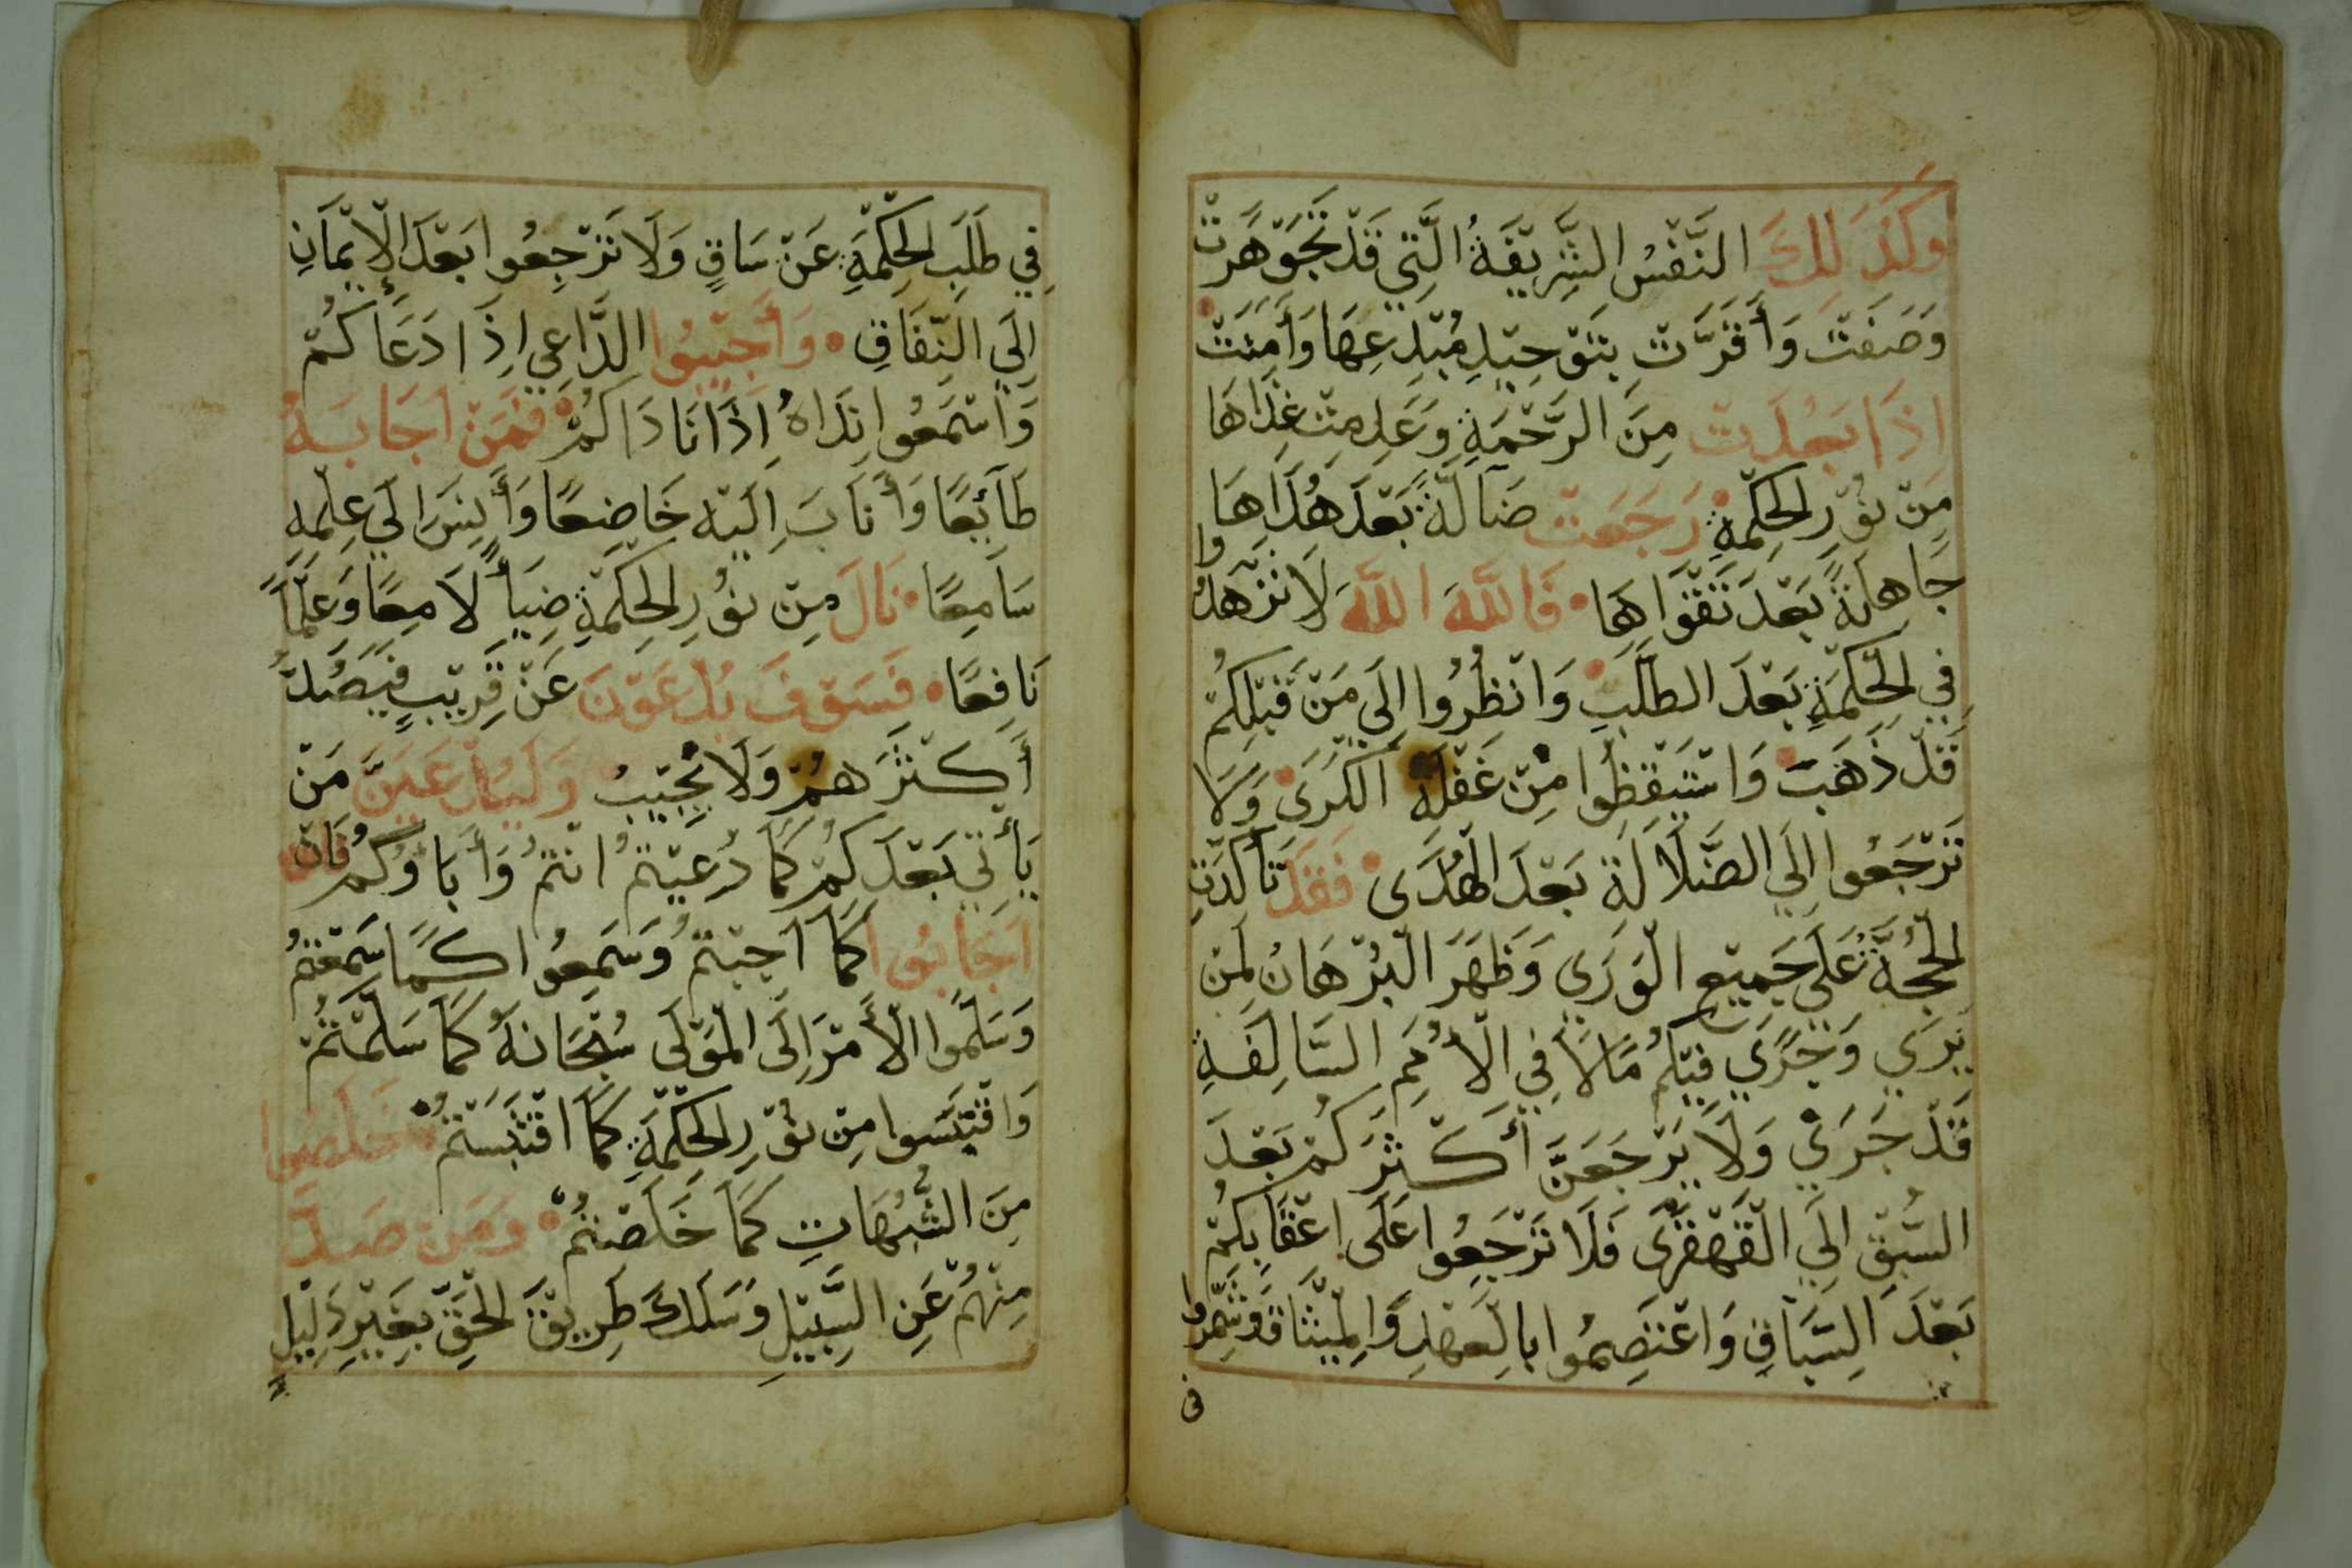 وَكَذَلِكَ النَّفْسُ الشَّرِيْفَةُ الَّتِي قَدْ تَجَوْهَرَتْ
وَصَفَتْ وَأَقَرَّتْ بِتَوْحِيْدِ مُبْدِعِهَا وَأَمِنَتْ
اِذَا بَعُدَتْ مِنَ الرَّحْمَةِ وَعَدِمَتْ غِذَاهَا
مِنْ نُوْرِ الْحِكْمَةِ رَجَعَتْ ضَآلَّةً بَعْدَ هُدَاهَا
جَاهِلَةً بَعْدَ تَقْوَاهَا فَاللَّهَ اللَّهَ لَا تَزْهَدُوا
فِي الْحِكْمَةِ بَعْدَ الطَّلَبِ وَانْظُرُوا اِلَى مَنْ قَبْلِكُمْ
قَدْ ذَهَبَ وَاسْتَيْقِظُوا مِنْ غَفْلَةِ الْكَرَى وَلَا
تَرْجَعُوا اِلَي الضَّلَالَةِ بَعْدَ الْهُدَى فَقَدْ تَأَكَّدَتِ
الْحُجَّةُ عَلَى جَمِيْعِ الْوَرَي وَظَهَرَ الْبُرْهَانُ لِمَنْ
يَرَي وَيَجْرَي فِيْكُمْ مَالَا فِي الْأُمَمِ السَّالِفَةِ
قَدْ جَرَي وَلَا يَرْجَعَنَّ أَكْثَرَكُمْ بَعْدَ
السَّبْقِ اِلَي الْقَهْقَرَى فَلَا تَرْجَعُوا عَلَى اعْقَابِكُمْ
بَعْدَ السِّبَاقِ وَاعْتَصِمُوا بِالْعَهْدِ وَالْمِيْثَاقِ وَشَمِّرُوا
فى
فِي طَلَبِ الْحِكْمَةِ عَنْ سَاقٍ وَلَا تَرْجِعُوا بَعْدَ الْإِيْمَانِ
اِلَي النِّفَاقِ وَأَجِيْبُوا الدَّاعِي اِذَا دَعَاكُمْ
وَاسْتَمَعُوا نِدَاهُ اِذَا نَادَاكُمْ فَمَنْ اَجَابَهُ
طَآئِعًا وَأَنَابَ اِلَيْهِ خَاضِعًا وَأَنِسَ اِلَي عِلْمِهِ
سَامِعًا نَالَ مِنْ نُوْرِ الْحِكْمَةِ ضِيَأً لَامِعًا وَعِلْمًا
نَافِعًا فَسَوْفَ يُدْعَوْنَ عَنْ قَرِيْبٍ فَيَصُدُّ
أَكْثَرَهُمْ وَلَا يُجِيْبُ وَلَيُدْعَيَنَّ مَنْ
يَأْتِي بَعْدَكُمْ كَمَا دُعِيْتُمْ انْتُمْ وَأَبَاوُكُمْ فَان
اَجَابُوا كَمَا اَجَبْتُمْ وَسَمِعُوا كَمَا سَمَعْتُمْ
وَسَلَّمُوا الْأَمْرَ اِلَى الْمَوْلَى سُبْحَانَهُ كَمَا سَلَّمْتُمْ
وَاقْتَبَسُوا مِنْ نُوْرِ الْحِكْمَةِ كَمَا اقْتَبَسْتُمْ خَلَصُوا
مِنَ الشُّبُهَاتِ كَمَا خَلَصْتُمْ وَمَنْ صَدَّ
مِنْهُمْ عَنِ السَّبِيْلِ وَسَلَكَ طَرِيْقَ الْحَقِّ بِغَيْرِ دَلِيْلٍ